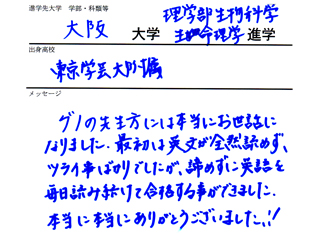 進学先大学 学部・科類等
理学部生物科学
大阪 大学 生命理学 進学
出身高校
東京学芸大附属
メッセージ
グノの先生方には本当にお世話に
なりました。最初は英文が全然読めず、
ツライ事ばかりでしたが、諦めずに英語を
毎日読み続けて合格する事ができました。
本当に本当にありがとうございました!!